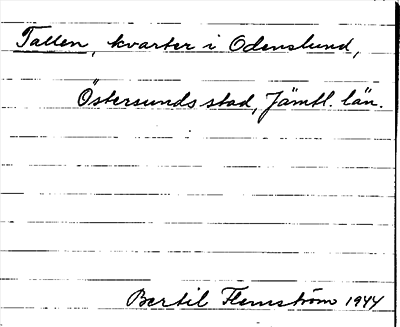 Tallen, kvarter i Odenslund,
Östersunds stad, Jämtl. län.
Bertil Flemström 1944